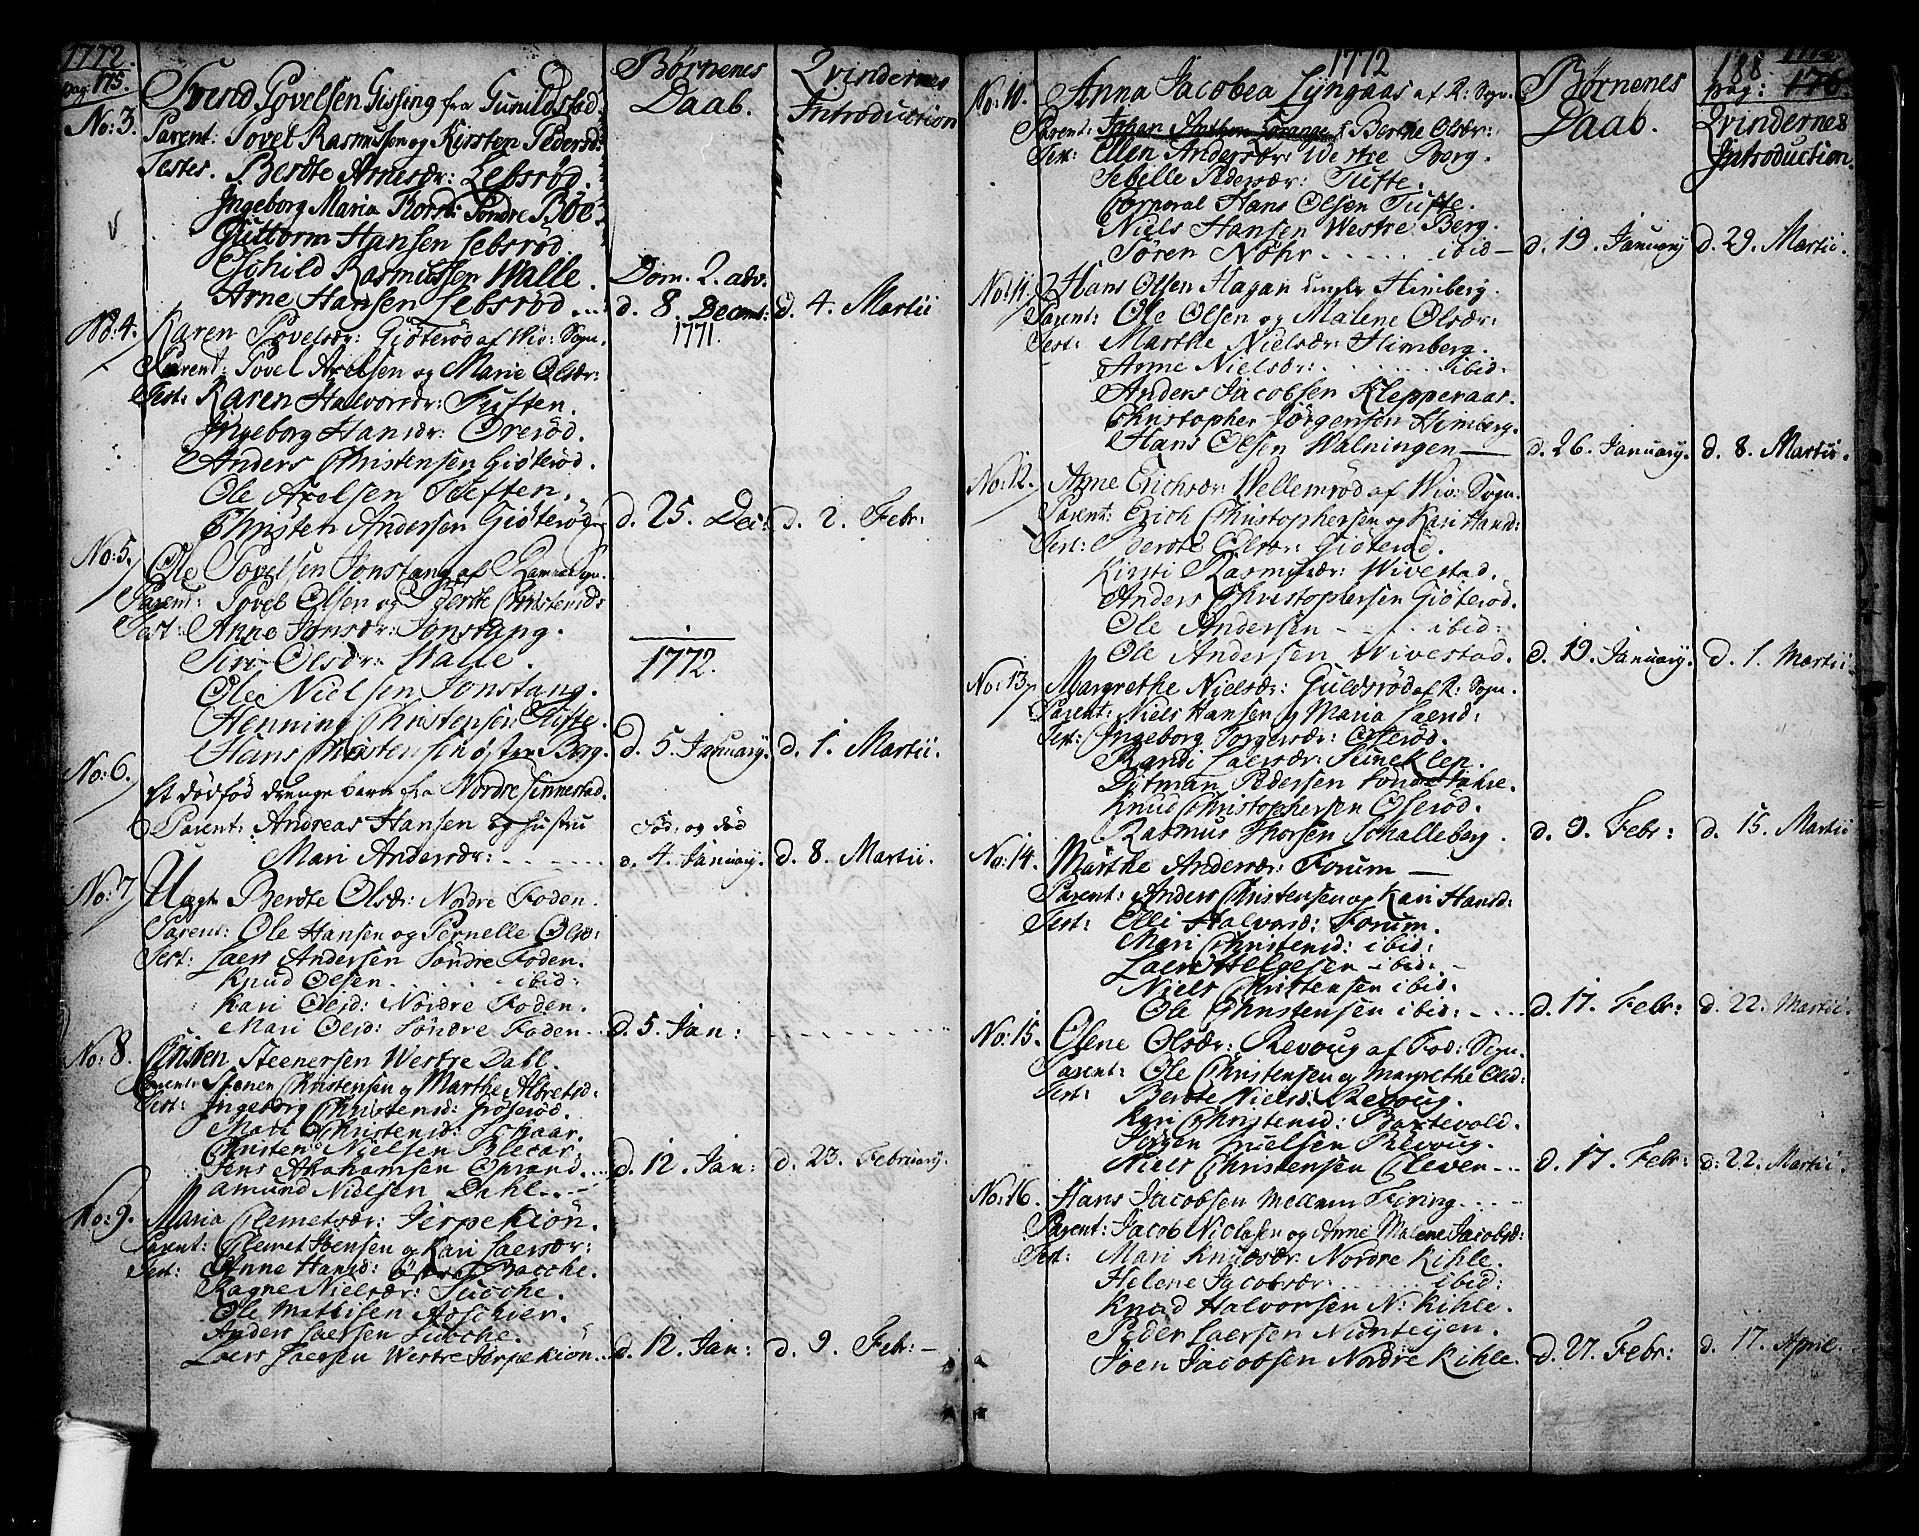 1772.
pag: 175.
Børnenes Daab.
Qvindernes Introduction
No: 3. Svend Povelsen Gissing fra Gunildstad.
Parent: Povel Rasmussen og Kirsten Pedersd:
Testes. Berdte Arnesdr: Lebsrød.
Ingeborg Maria Søndre Bøe.
Guttorm Hansen Lebsrød.
Eschild Rasmussen Walle.
Arne Hansen Lebsrød... Dom. 2. adv. d. 8. Decemb: 1771. d. 4. Martii
No: 4. Karen Povelsdr: Giøterød af Wiv: Sogn.
Parent: Povel Axelsen og Marie Olsdr:
Test: Karen Halvorsdr: Tuften.
Ingeborg Hansdr: Orerød.
Anders Christensen Giøterød.
Ole Axelsen Tuften.
Christen Andersen Giøterød d. 25. Dec: d. 2. Febr:
No: 5. Ole Povelsen Jonstang af Ramnes Sogn.
Parent: Povel Olsen og Berdte Christensd:
Test: Anne Jonsdr: Jonstang.
Siri Olsdr: Walle.
1772.
Ole Nielsen Jonstang.
Henning Christensen Tufte.
Hans Christensen østre Berg. d. 5. January. d. 1. Martii.
No: 6. Et dødfød drengebarn fra Nordre Sinnestad.
Parent: Andreas Hansen og hustru
Mari Andersdr: - - - - Fød og død d. 4. January. d. 8. Martii.
No: 7. Uægte Berdte Olsdr: Nordre Foden.
Parent: Ole Hansen og Pernelle Olsdr:
Test: Laers Andersen Søndre Foden.
Knud Olsen . . . . . ibid:
Kari Olsd: Nordre Foden.
Mari Olsd: Søndre Foden... d. 5. Jan: - - - - - -
No: 8. Christen Steenersen Westre Dahl.
Parent: Steener Christensen og Marthe Albretsd:
Test: Ingeborg Christensd: Frøserød.
Mari Christensd: Schaar.
Christen Nielsen Blecar.
Jens Abrahamsen Oprand... d. 12. Jan: d. 23. February.
Amund Nielsen Dahl...
No: 9. Maria Clemetsdr: Jerpekion.
Parent: Clemet Joensen og Kari Laersdr:
Test: Anne Hansd: østre Bacche.
Ragne Nielsdr: Sucche.
Ole Mathisen Asschier.
Anders Laersen Sucche.
Laers Laersen Westre Jerpekion... d. 12. Jan: d. 9. Febr: -
1772
188
pag: 176.
Børnenes Daab.
Qvindernes Introduction.
No: 10. Anna Jacobea Lyngaas af R: Sogn
Parent: Johan Anthon & Berthe Olsdr:
Test: Ellen Andersdr: Westre Berg.
Sebille Pedersdr: Tufte.
Corporal Hans Olsen Tufte.
Niels Hansen Westre Berg.
Søren Nøhr . . . . . ibid - d. 19. January d. 29. Martii.
No: 11. Hans Olsen Hagan under Himberg.
Parent: Ole Olsen og Malene Olsdr:
Test: Marthe Nielsdr: Himberg.
Anne Nielsdr: . . . . . ibid:
Anders Jacobsen Klepperaas.
Christopher Jørgensen Himberg.
Hans Olsen Walningen — d. 26. January. d. 8. Martii.
No: 12. Anne Erichsdr: Wellemrød af Wiv: Sogn.
Parent: Erich Christophersen og Kari Hansd:
Test: Berdte Olsdr: Giøterød.
Kirsti Rasmusdr: Wivestad.
Anders Christophersen Giøterød.
Ole Andersen - - - - ibid:
Ole Andersen Wivestad. d. 19. January. d. 1. Martii.
No: 13. Margrethe Nielsdr: Guldsrød af R: Sogn.
Parent: Niels Hansen og Maria Laersd:
Test: Ingeborg Torgersdr: Osserød.
Randi Laersdr:
Ditman Pedersen
Knud Christophersen Osserød.
Rasmus Thorsen Schalleberg. d. 9. Febr: d. 15. Martii
No: 14. Marthe Andersdr: Forum —
Parent: Anders Christensen og Kari Hansd:
Test: Elli Halvorsd: Forum.
Mari Christensd: ibid:
Laers Helgesen ibid: -
Niels Christensen ibid:
Ole Christensen ibid: - ... d. 17. Febr: d. 22. Martii.
No: 15. Olene Olsdr: Revoug af Fod: Sogn.
Parent: Ole Christensen og Margrethe Olsd:
Test: Berdte Nielsd: Revoug.
Kari Christensd: Bartevold.
Jørgen Truelsen Revoug.
Niels Christensen Cleven - - - d. 17. Febr: d: 22. Martii.
No: 16. Hans Jacobsen Mellem Firing - . . . -
Parent: Jacob Niclasen og Anne Malene Jacobsd:
Test: Mari Knudsdr: Nordre Kihle.
Helene Jacobsdr: . . . . . ibid:
Knud Halvorsen N: Kihle.
Peder Laersen
Joen Jacobsen Nordre Kihle. d. 27. Febr: d. 17. April.